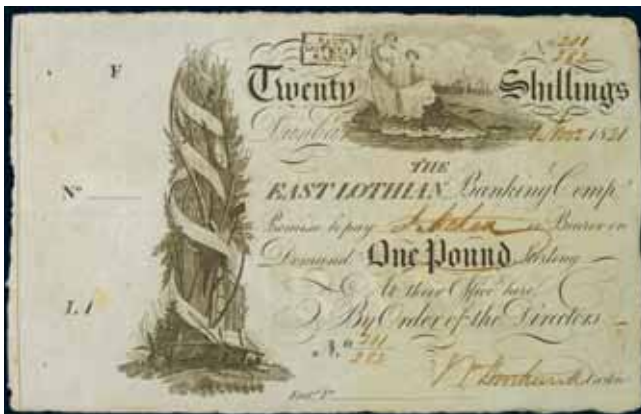 F
Nº
L I
Nº 211
262
Twenty Shillings
Dunbar 1 Nov 1821
THE
EAST LOTHIAN Banking Compʸ
Promise to pay or Bearer on
Demand One Pound Sterling
At their Office here.
By Order of the Directors
Nº 211
262